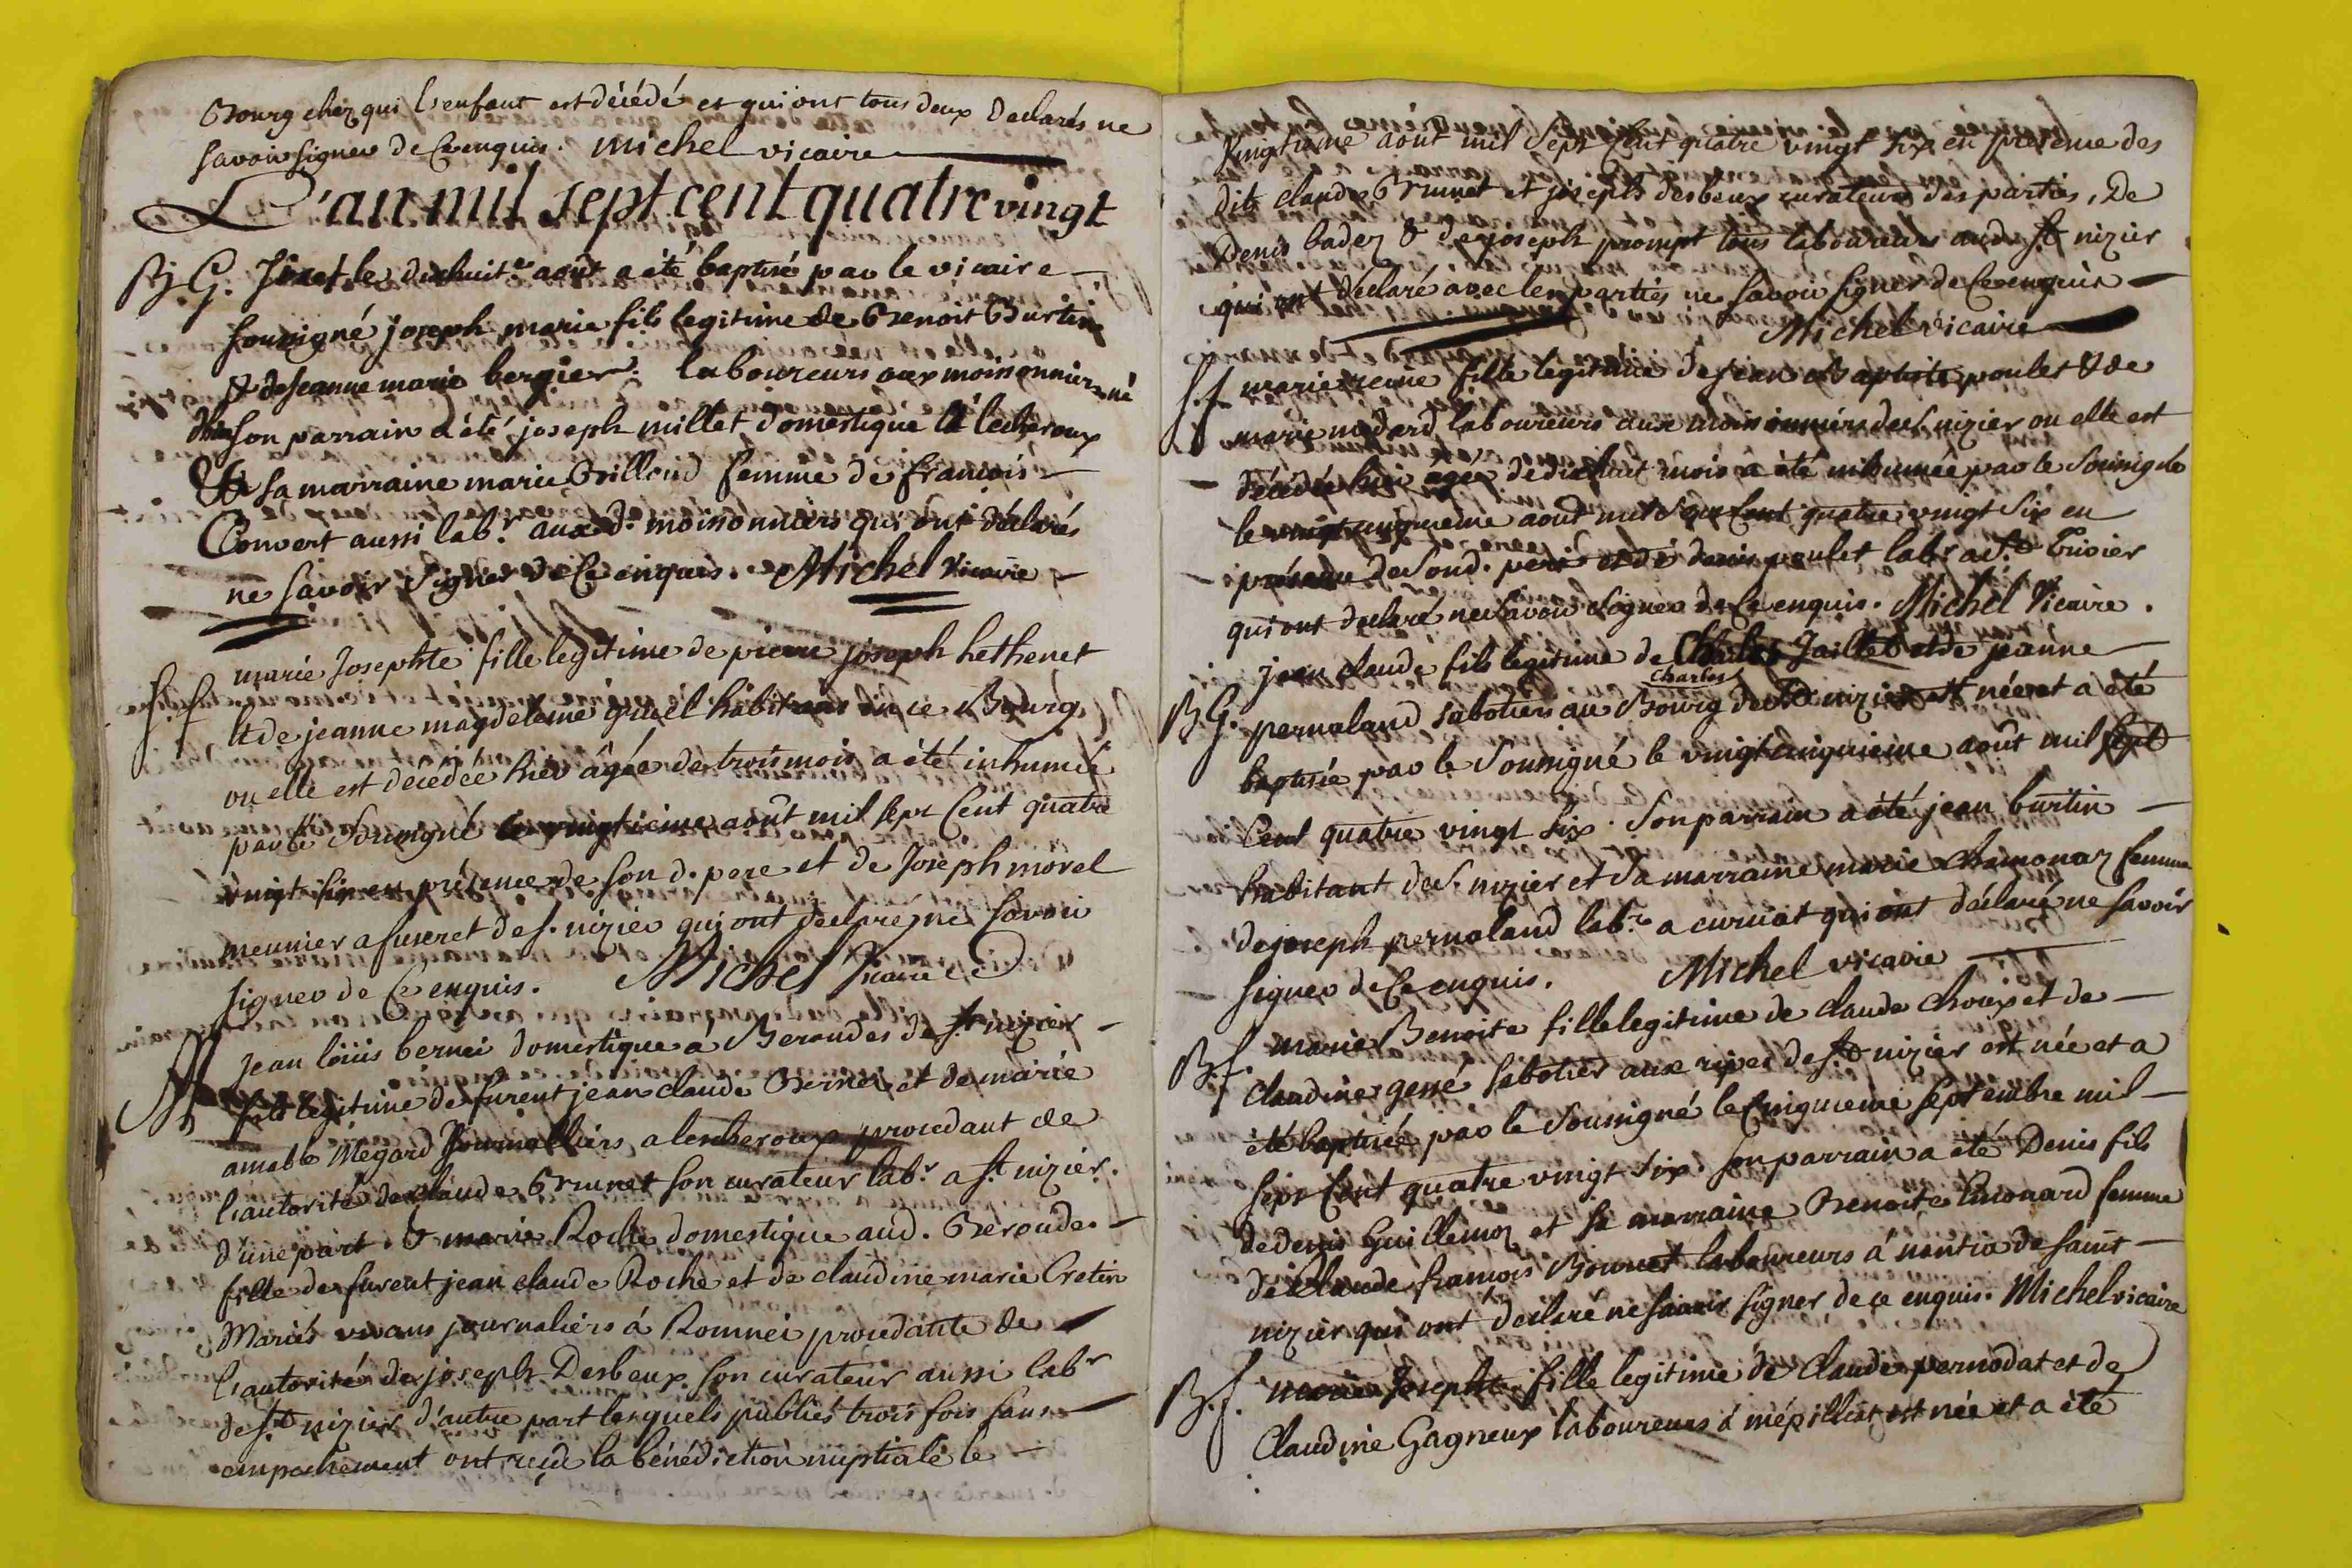 Bourg chez qui l'enfant est décédé et qui ont tous deux declarés ne
savoir signer de ce enquis. Michel vicaire
L'an mil sept cent quatre vingt
B.G. six et le dixhuit.e août a été baptisé par le vicaire
soussigné joseph marie fils legitime de Benoit Burtin
et de jeanne marie bergier laboureurs aux moissonniers né
son parrain a été joseph millet domestique a lecheroux
Et sa marraine marie Brillond femme de francois
Convert aussi lab.r aux d. moissonniers qui ont déclarés
ne savoir signer de ce enquis. Michel vicaire
marie Josephte fille legitime de pierre joseph hethenet
S.f et de jeanne magdeleine habitans en ce Bourg
ou elle est decedée hier âgée de trois mois a été inhumée
par le soussigné le vingtieme août mil sept cent quatre
vingt six en présence de son d. pere et de Joseph morel
meunier a fuseret de s. nizier qui ont declaré ne savoir
signer de ce enquis. Michel vicaire
jean loüis bernei domestique a Beroudes de st nizier
M fils legitime de furent jean claude Bernei et de marie
amable Megard Journalliers a lescheroux procedant de
l'autorité de claude Brunet son curateur lab.r a st. nizier.
d'une part & marie Roche domestique aud. Beroudes
fille de furent jean claude Roche et de claudine marie Cretin
Mariés vivans journaliers à Romnei procedante de
l'autorité de joseph Desbeux son curateur aussi labr
de st nizier d'autre part lesquels publiés trois fois sans
empechement ont reçu la bénédiction nuptiale le
vingtieme août mil sept cent quatre vingt six en presence des
dits claude Brunet et joseph desbeux curateurs des parties, De
Denis badez & de joseph prompt tous laboureurs aud. st nizier
qui ont déclaré avec les parties ne savoir signer de ce enquis
Michel vicaire
S.f marie reine fille legitime de jean Baptiste poulet & de
marie médard laboureurs aux moissonniers de s. nizier ou elle est
décédée hier agée de dixhuit mois a été inhumée par le soussigné
le vingt cinquieme août mil sept cent quatre vingt six en
présence de son d. pere et de denis poulet lab.r a st. Trivier
qui ont declaré ne savoir signer de ce enquis. Michel vicaire.
jean claude fils legitime de Charles Jaillet et de jeanne
Charles
B.G. pernaland sabotiers au Bourg de st nizier est née et a été
baptisée par le soussigné le vingt cinquieme août mil sept
cent quatre vingt six. Son parrain a été jean burtin
habitant de s. nizier et sa marraine marie chamonaz femme
de joseph pernaland lab.r a curciat qui ont déclaré ne savoir
signer de ce enquis. Michel vicaire
marie Benoite fille legitime de claude choux et de
B.f. claudine gessé sabotier aux ripes de st nizier est née et a
été baptisée par le soussigné le cinquieme septembre mil
sept cent quatre vingt six. Son parrain a été Denis fils
de denis Guillemoz et sa marraine Benoite femme
de claude françois Bonnet laboureurs à nantia de saint
nizier qui ont declaré ne savoir signer de ce enquis. Michel vicaire
B.f. marie Josephte fille legitime de Claude pernodat et de
Claudine Gagneux laboureurs à mépillat est née et a été